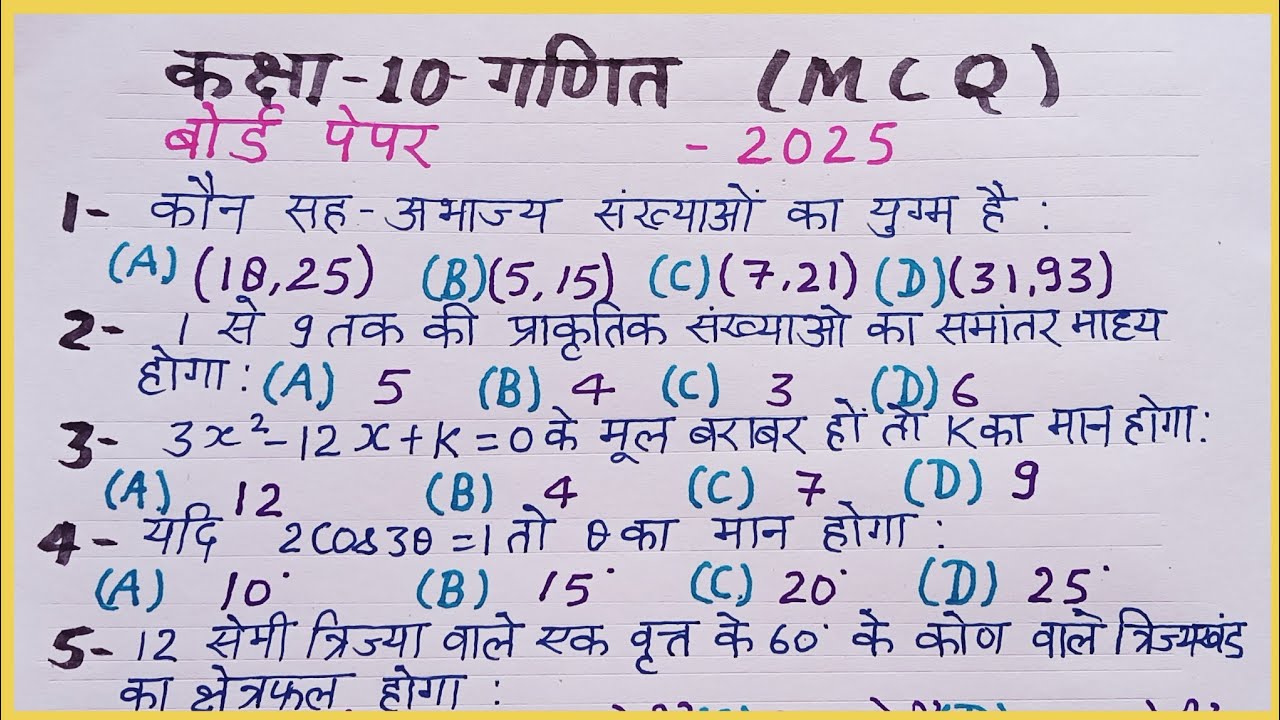 कक्षा-10-गणित (MCQ)
बोर्ड पेपर - 2025
1- कौन सह-अभाज्य संख्याओं का युग्म है :
(A) (18,25) (B)(5,15) (C)(7,21) (D)(31,93)
2- 1 से 9 तक की प्राकृतिक संख्याओ का समांतर माध्य
होगा: (A) 5 (B) 4 (C) 3 (D) 6
3- 3x²-12x+K=0 के मूल बराबर हों तो K का मान होगा:
(A) 12 (B) 4 (C) 7 (D) 9
4- यदि 2Cos3θ=1 तो θ का मान होगा :
(A) 10° (B) 15° (C) 20° (D) 25°
5- 12 सेमी त्रिज्या वाले एक वृत्त के 60° के कोण वाले त्रिज्यखंड
का क्षेत्रफल होगा :